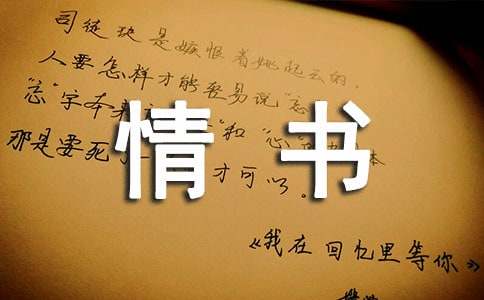 司徒玦是嫉恨着姚起云的，
人要怎样才能轻易说“忘
“忘”字本来
和“心”
那是要死
才可以。
情书
《我在回忆里等你》